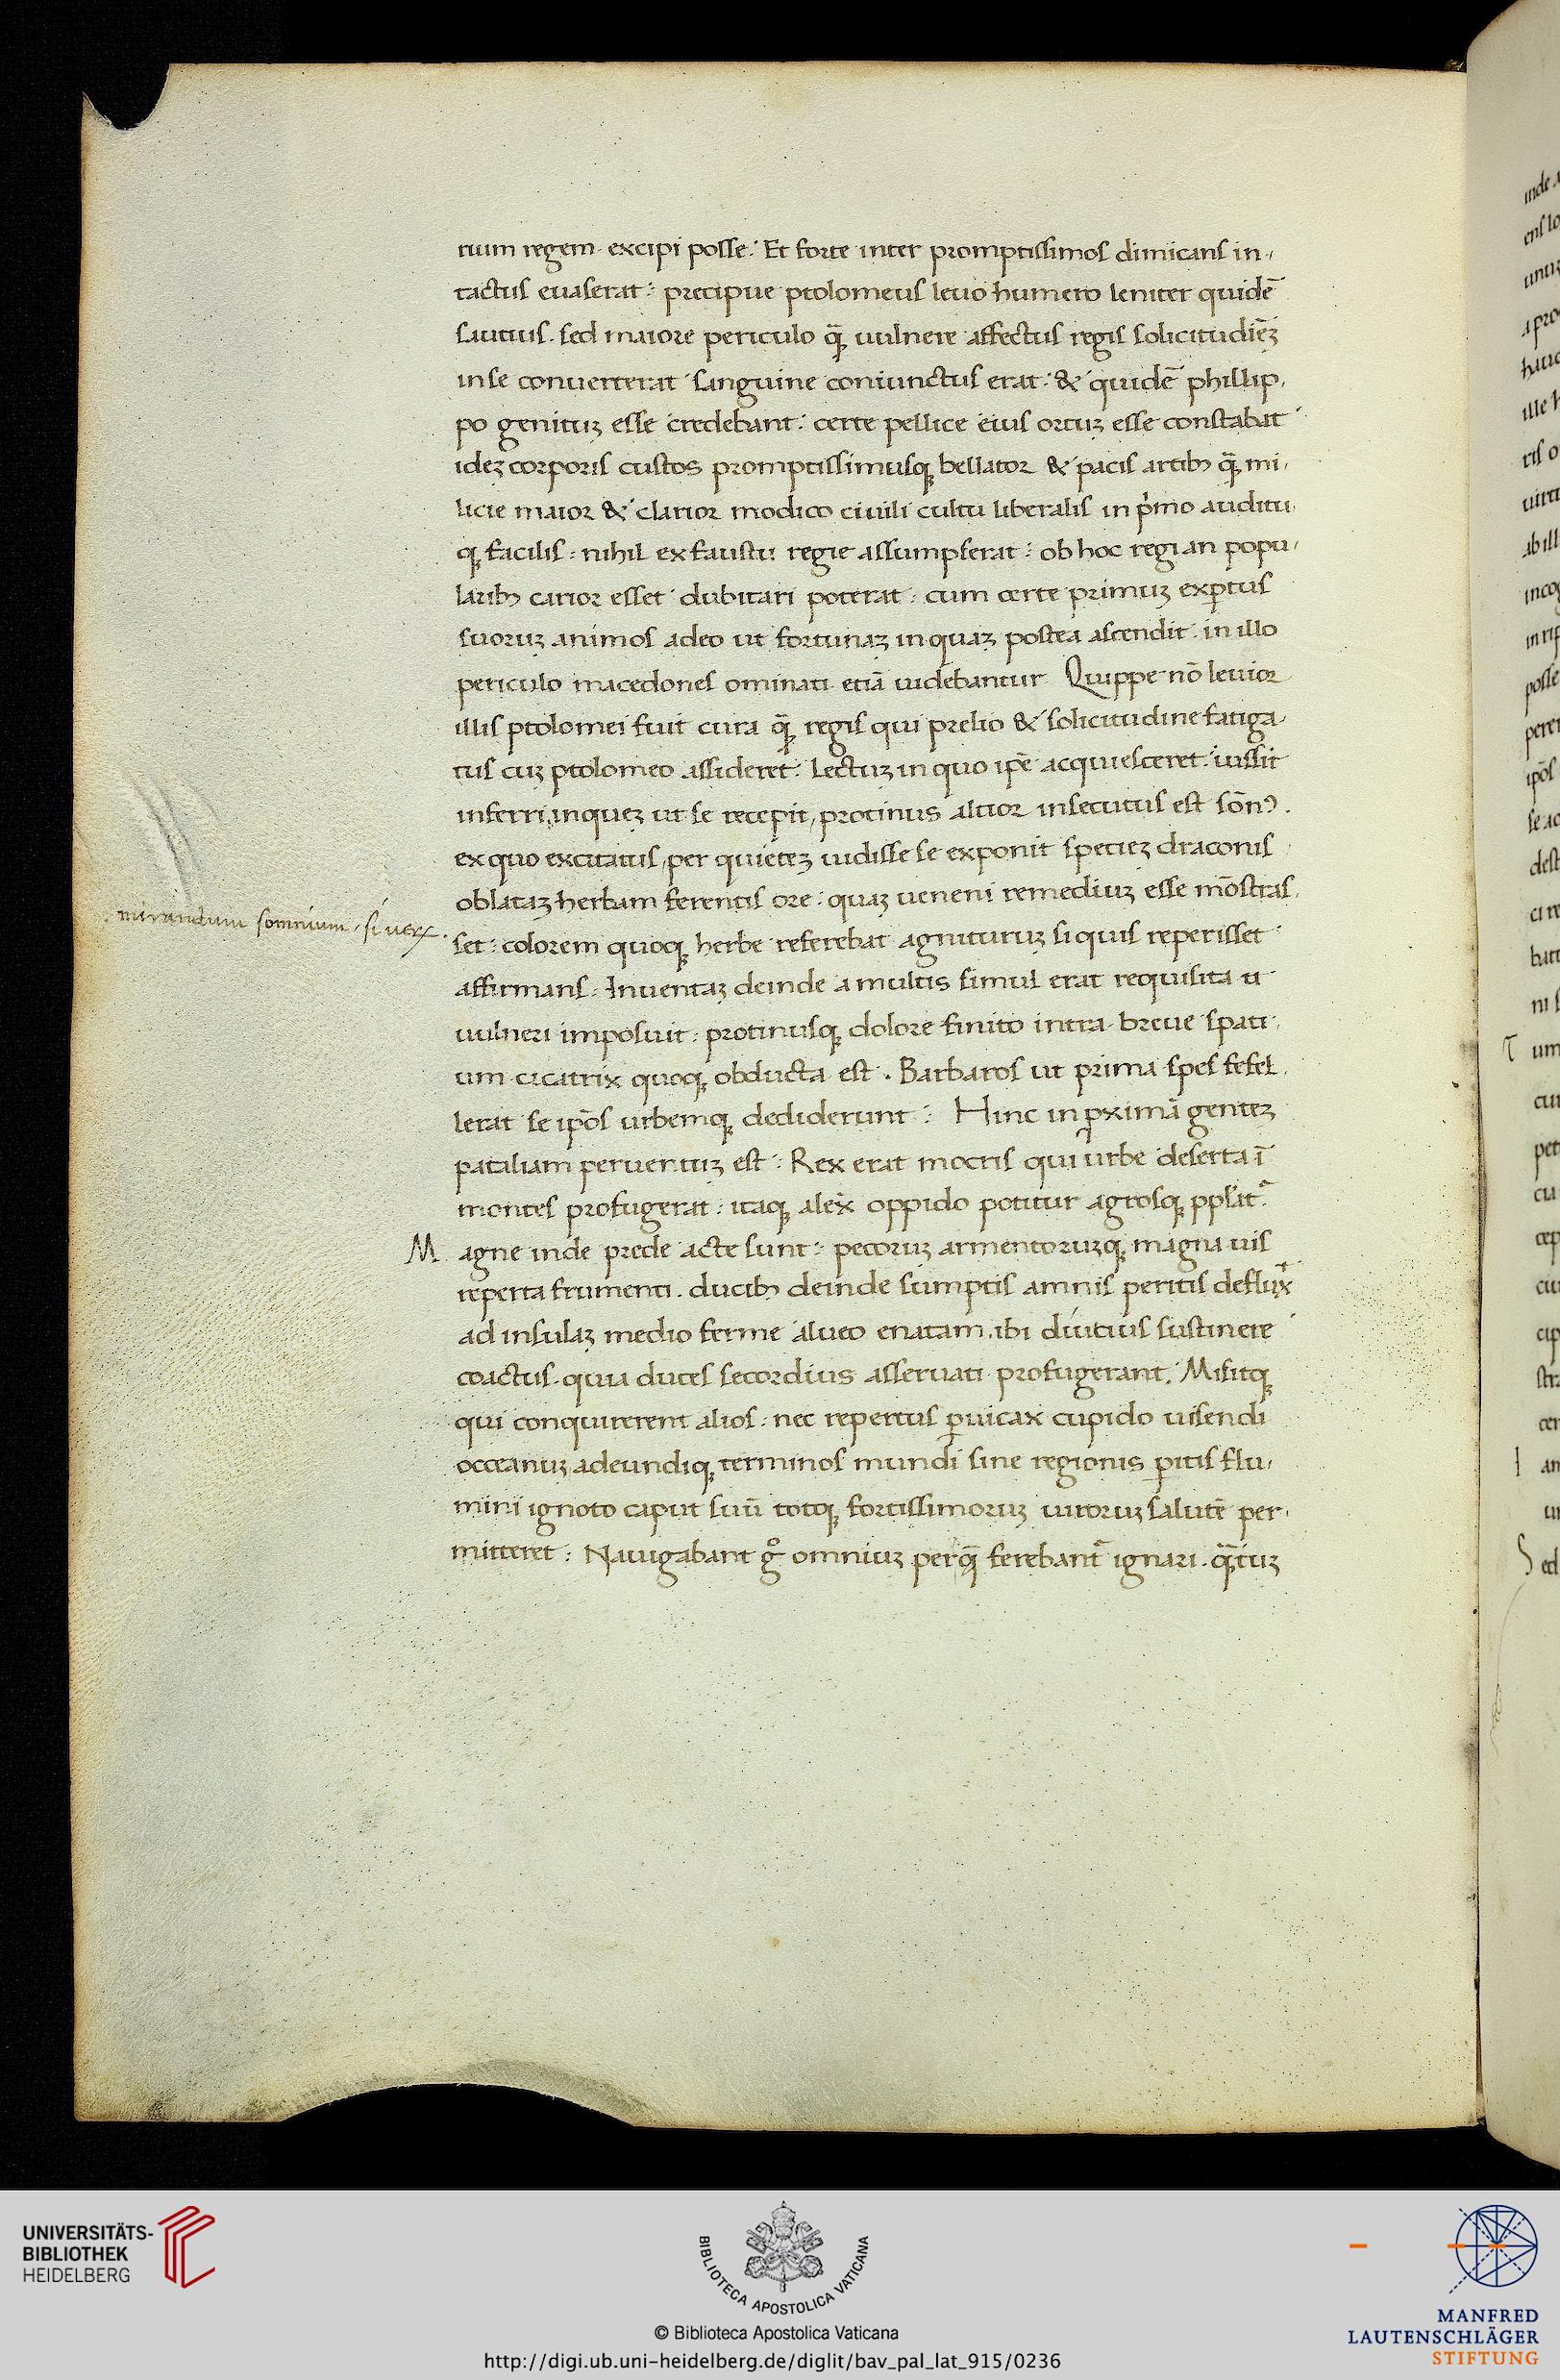 rium regem. excipi posse. Et forte inter promptissimos dimicans in,
tactus euaserat: precipue ptolomeus leuo humero leuiter quidē
sautius. sed maiore periculo qȝ̄ uulnere affectus regis solicitudiēȝ
in se conuerterat sanguine coniunctus erat: & quidē phillip,
po genituȝ esse credebant: certe pellice eius ortuȝ esse constabat
ideȝ corporis custos promptissimusqȝ bellator & pacis artibȝ qȝ̄ mi,
licie maior & clarior modico ciuili cultu liberalis in p̍mo auditu,
qȝ facilis: nihil ex faustu regie assumpserat: ob hoc regi an popu,
laribȝ carior esset dubitari poterat: cum certe primuȝ exp̱tus
suoruȝ animos adeo ut fortunaȝ in quaȝ postea ascendit. in illo
periculo macedones ominati etiā uidebantur Quippe nō leuior
illis ptolomei fuit cura qȝ̄ regis qui prelio & solicitudine fatiga,
tus cuȝ ptolomeo assideret: Lectuȝ in quo ip̄e acquiesceret. iussit
inferri, inqueȝ ut se recepit, protinus altior insecutus est sōnꝰ.
ex quo excitatus, per quieteȝ uidisse se exponit specieȝ draconis
oblataȝ herbam ferentis ore: quaȝ ueneni remediuȝ esse mōstras,
. mirandum somnium, si uerx.
set: colorem quoqȝ herbe referebat agnituruȝ si quis reperisset
affirmans: Inuentaȝ deinde a multis simul erat requisita u
uulneri imposuit: protinusqȝ dolore finito intra breue spati,
um cicatrix quoqȝ obducta est. Barbaros ut prima spes fefel,
lerat se ip̄os urbemqȝ dediderunt: Hinc in ꝓximā genteȝ
pataliam peruentuȝ est: Rex erat mocris qui urbe deserta ī
montes profugerat: itaqȝ alex̄ oppido potitur agrosqȝ pp̄lat᷑
Magne inde prede acte sunt: pecoruȝ armentoruȝqȝ magna uis
reperta frumenti. ducibȝ deinde sumptis amnis peritis deflux᷑
ad insulaȝ medio ferme alueo enatam. ibi diutius sustinere
coactus. quia duces secordius asseruati profugerant. Misitqȝ
qui conquirerent alios: nec repertis ꝑuicax cupido uisendi
occeanuȝ adeundiqȝ terminos mundi sine regionis ꝑitis flu,
mini ignoto caput suū totqȝ fortissimoruȝ uiroruȝ salutē per,
mitteret: Nauigabant gͦ omniuȝ per q̄ ferebant᷑ ignari. qȝ̄tuȝ
UNIVERSITÄTS-
BIBLIOTHEK
HEIDELBERG
BIBLIOTECA APOSTOLICA VATICANA
© Biblioteca Apostolica Vaticana
http://digi.ub.uni-heidelberg.de/diglit/bav_pal_lat_915/0236
MANFRED
LAUTENSCHLÄGER
STIFTUNG